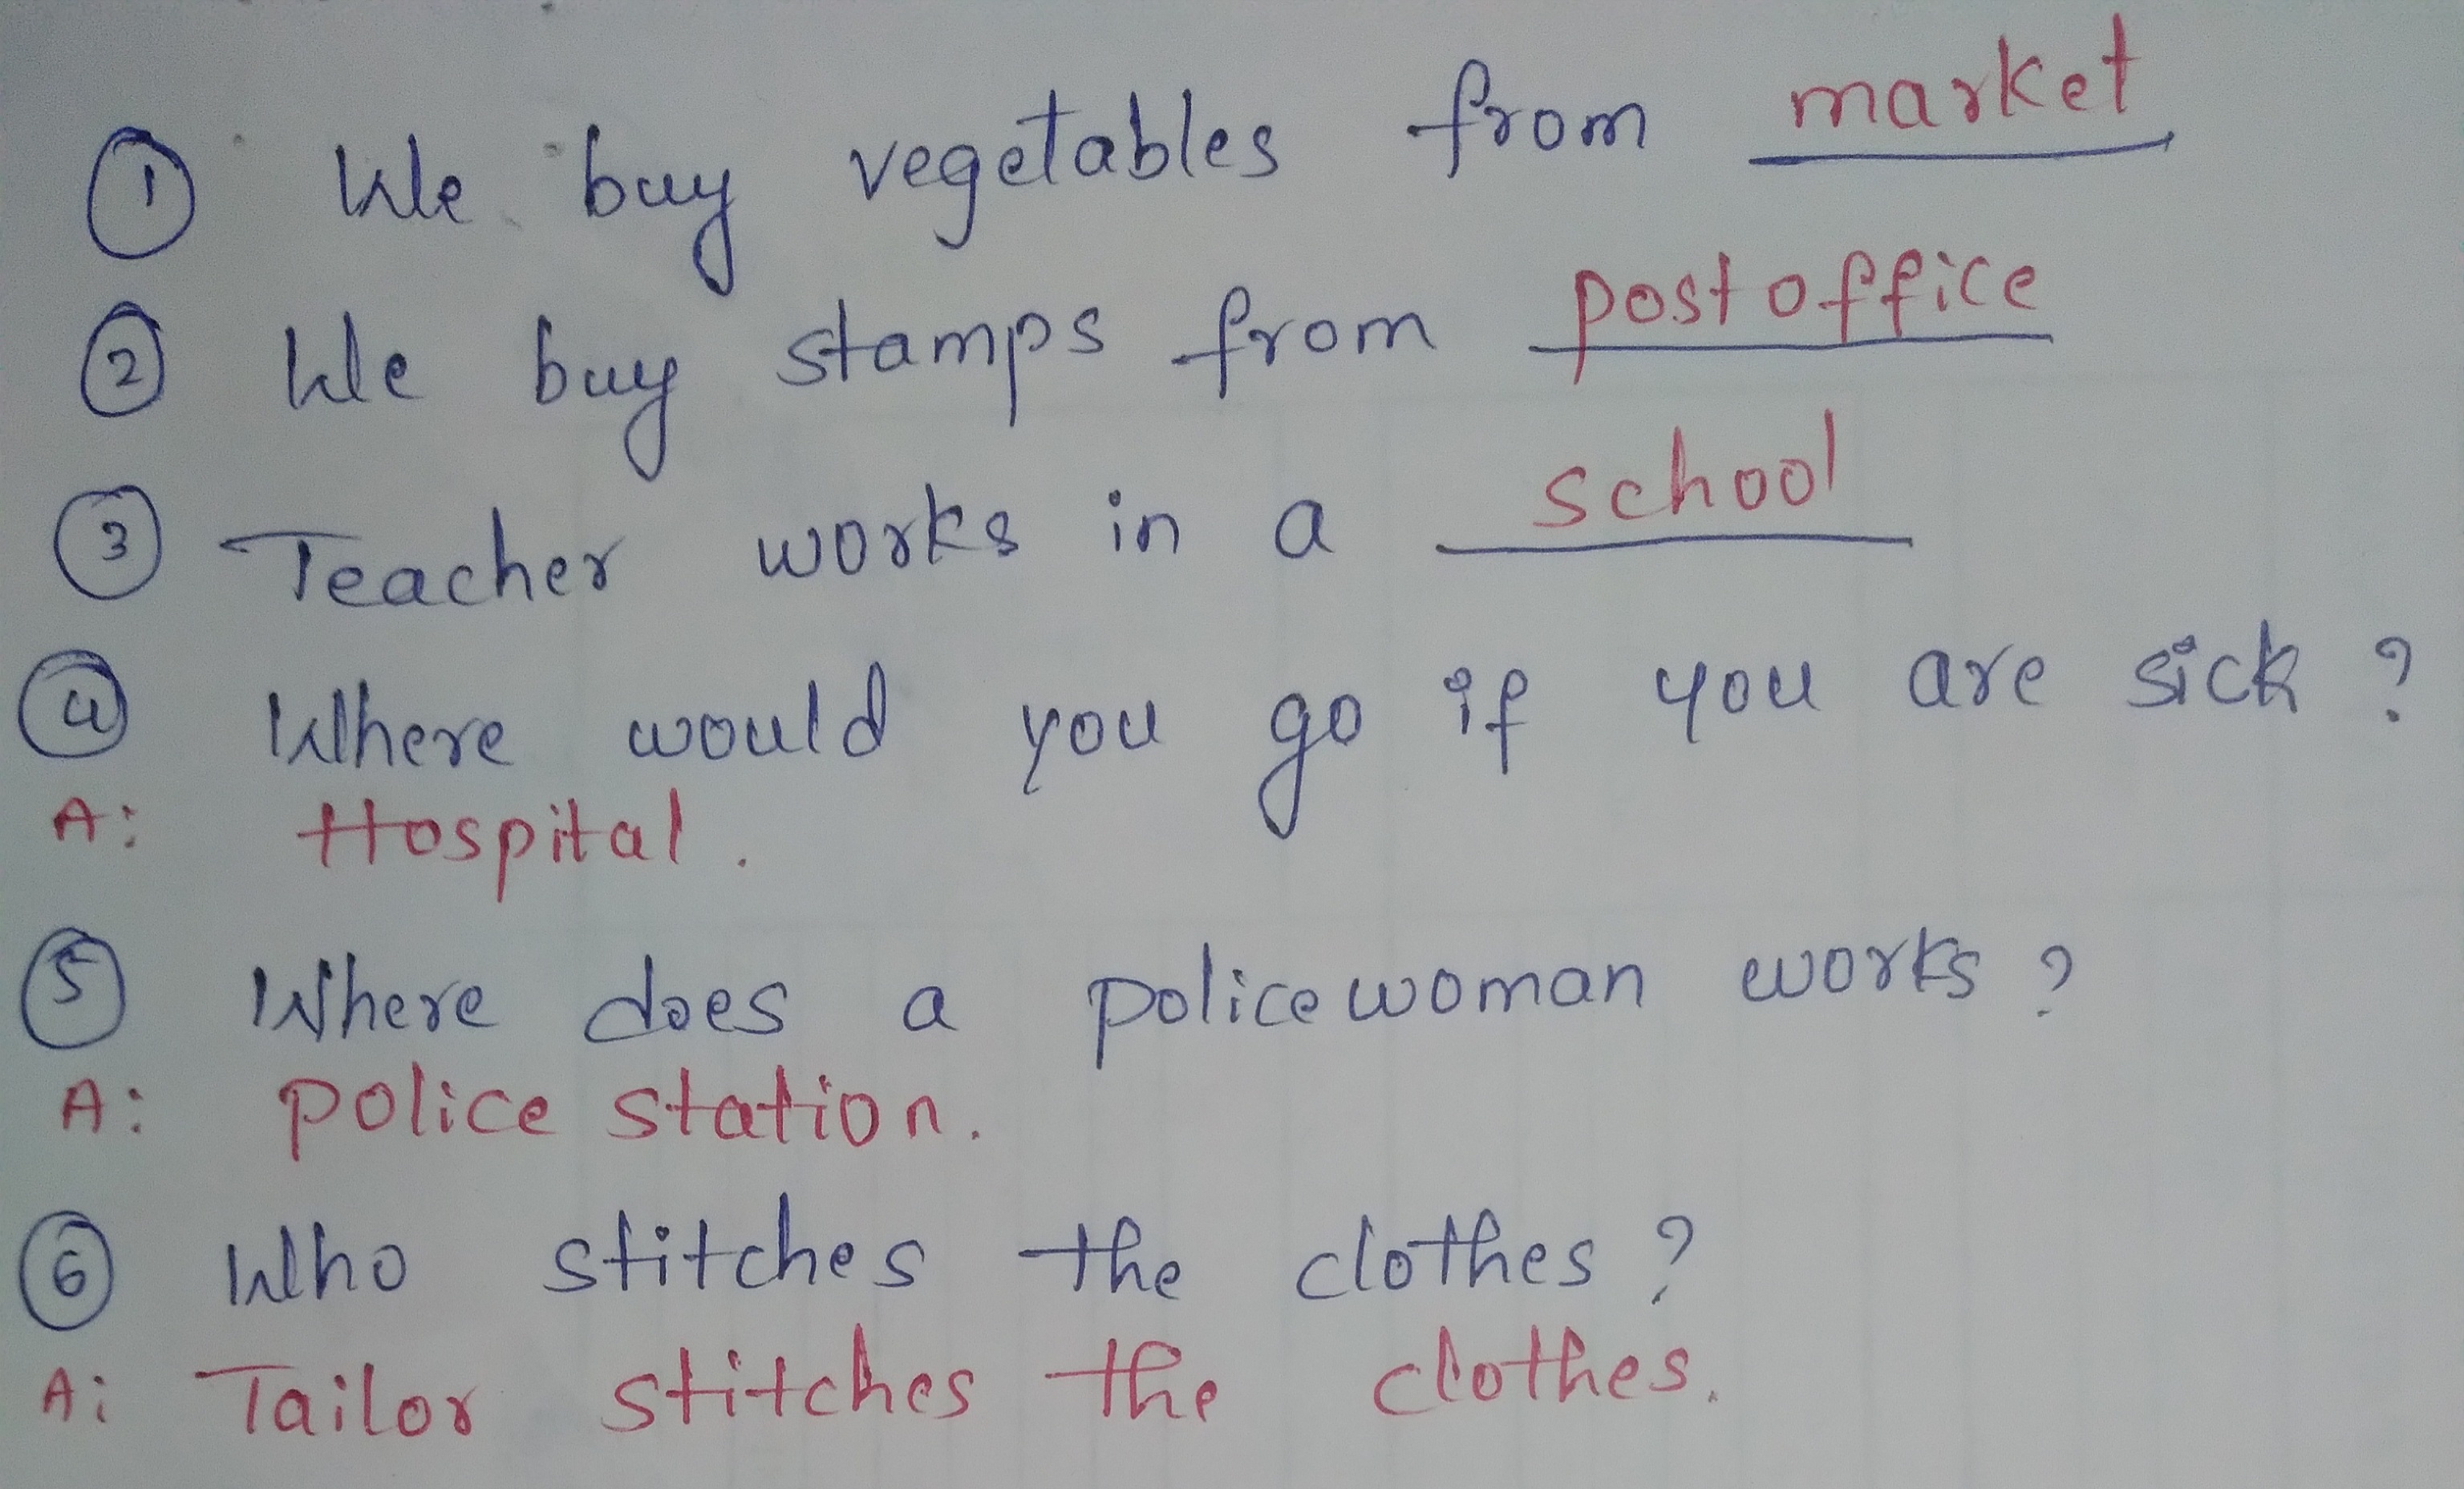 ① We buy vegetables from market
② We buy stamps from post office
③ Teacher works in a school
④ Where would you go if you are sick ?
A: Hospital.
⑤ Where does a policewoman works ?
A: police station.
⑥ Who stitches the clothes ?
A: Tailor stitches the clothes.